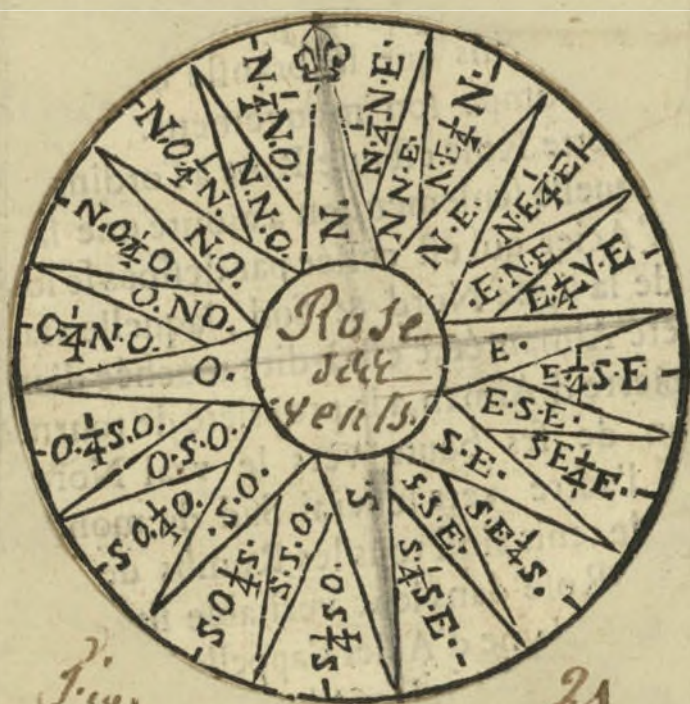 N.
N.¼N.E.
N N.E.
N.E¼N.
N.E.
N.E¼E
.E.N.E
E¼N.E
E.
E¼S.E
E.S.E.
S E¼E.
S.E.
S.E¼S.
S.S.E.
S¼S.E.
S
S¼S O
S.S.O.
S.O¼S.
.S.O.
S O¼O.
O.S.O.
O.¼S.O.
O.
O¼N.O.
O.NO.
N.O¼O.
N.O.
N.O¼N.
N.N.O.
N¼N.O.
Rose
des
vents.